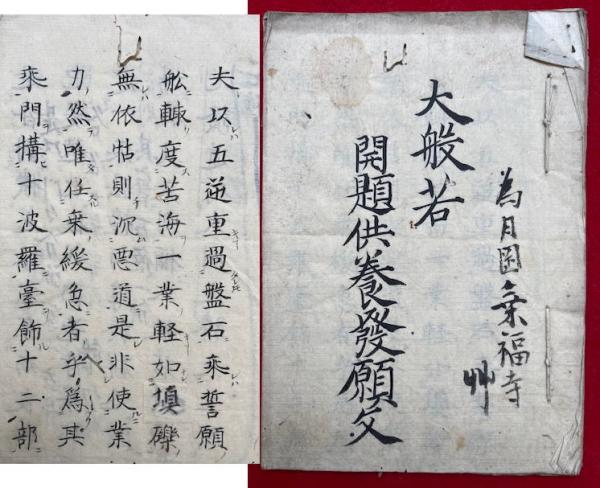 為月岡乗福寺
艸
大般若
開題供養發願文
夫以五逆重過盤石乗誓願
舩轍度苦海一業軽如塡礫
無依怙則沉悪道是非使業
力然唯任乗緩急者乎爲其
乗門搆十波羅臺飾十二部